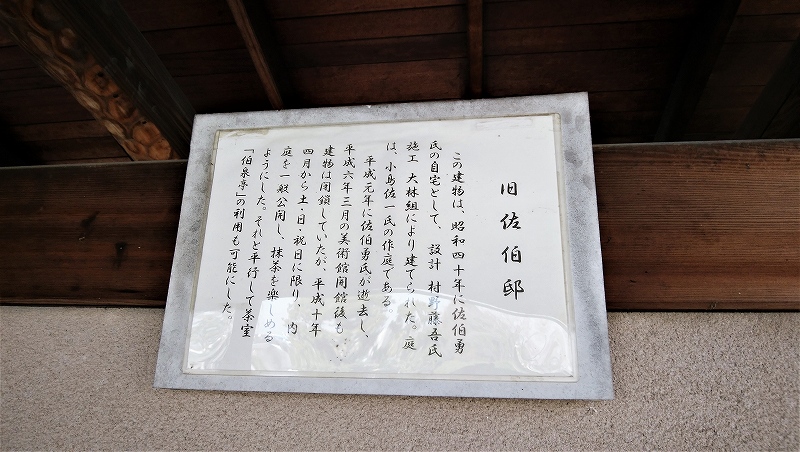 旧佐伯邸
この建物は、昭和四十年に佐伯勇
氏の自宅として、設計 村野藤吾氏
施工 大林組により建てられた。庭
は、小島佐一氏の作庭である。
平成元年に佐伯勇氏が逝去し、
平成六年三月の美術館開館後も
建物は閉鎖していたが、平成十年
四月から土・日・祝日に限り、内
庭を一般公開し、抹茶を楽しめる
ようにした。それと平行して茶室
「伯泉亭」の利用も可能にした。